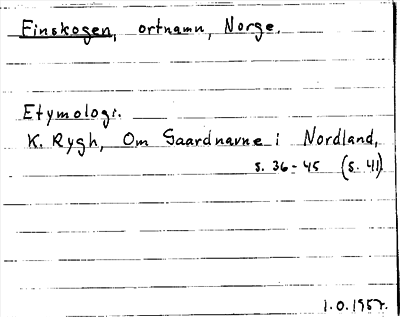 Finskogen, ortnamn, Norge.
Etymologi.
K. Rygh, Om Gaardnavne i Nordland,
s. 36-45 (s. 41)